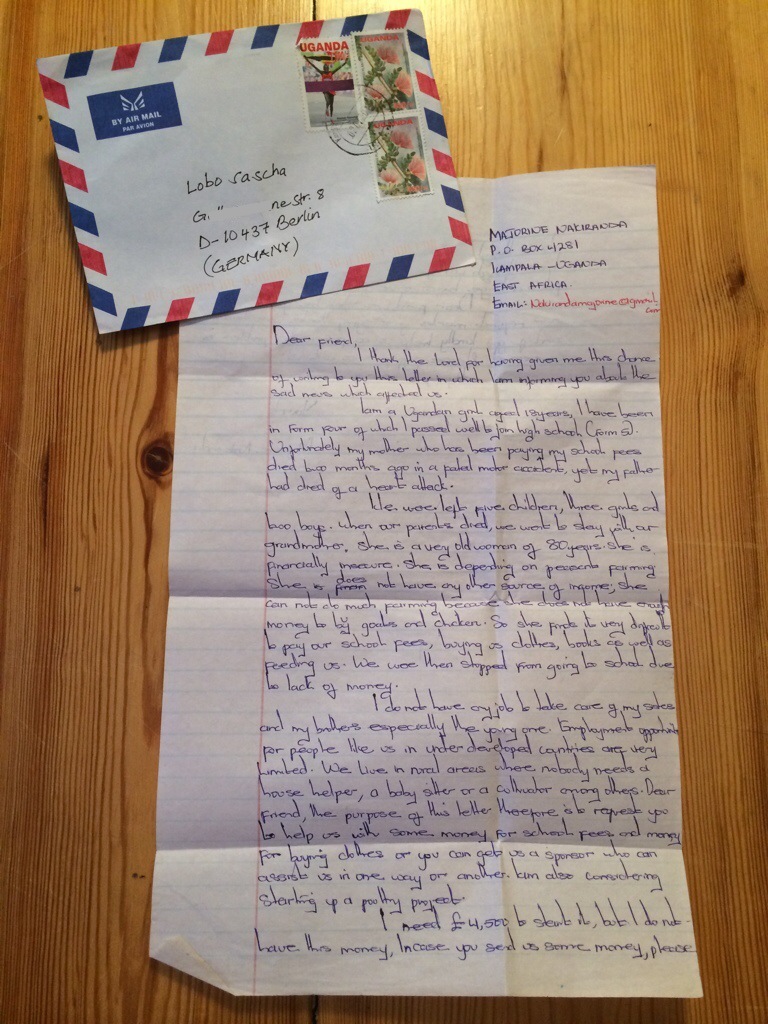 UGANDA
UGANDA
UGANDA
BY AIR MAIL
PAR AVION
Lobo Sascha
G. " nestr. 8
D-10437 Berlin
(GERMANY)
MAJORINE NAKIRANDA
P.O. BOX 4281
KAMPALA - UGANDA
EAST AFRICA.
EMAIL:
Dear friend,
I thank the Lord for having given me this chance
of writing to you this letter in which I am informing you about the
sad news which affected us.
I am a Ugandan girl aged 18years, I have been
in Form four of which I passed well to join high school (form 5).
Unfortunately my mother who has been paying my school fees
died two months ago in a fatal motor accident, yet my father
had died of a heart attack.
We were left five children, three girls and
two boys. When our parents died, we went to stay with our
grandmother. She is a very old woman of 80years. She is
financially insecure. She is depending on peasant farming
She does not have any other source of income; she
can not do much farming because she does not have enough
money to buy goats and chicken. So she finds it very difficult
to pay our school fees, buying us clothes, books as well as
feeding us. We were then stopped from going to school due
to lack of money.
I do not have any job to take care of my sisters
and my brothers especially the young one. Employment
for people like us in under developed countries are very
limited. We live in rural areas where nobody needs a
house helper, a baby sitter or a cultivator among others. Dear
Friend, the purpose of this letter therefore is to request you
to help us with some money for school fees and money
for buying clothes or you can get us a sponsor who can
assist us in one way or another. Iam also considering
starting up a poultry project.
I need £4,500 to start it, but I do not
have this money, Incase you send us some money, please